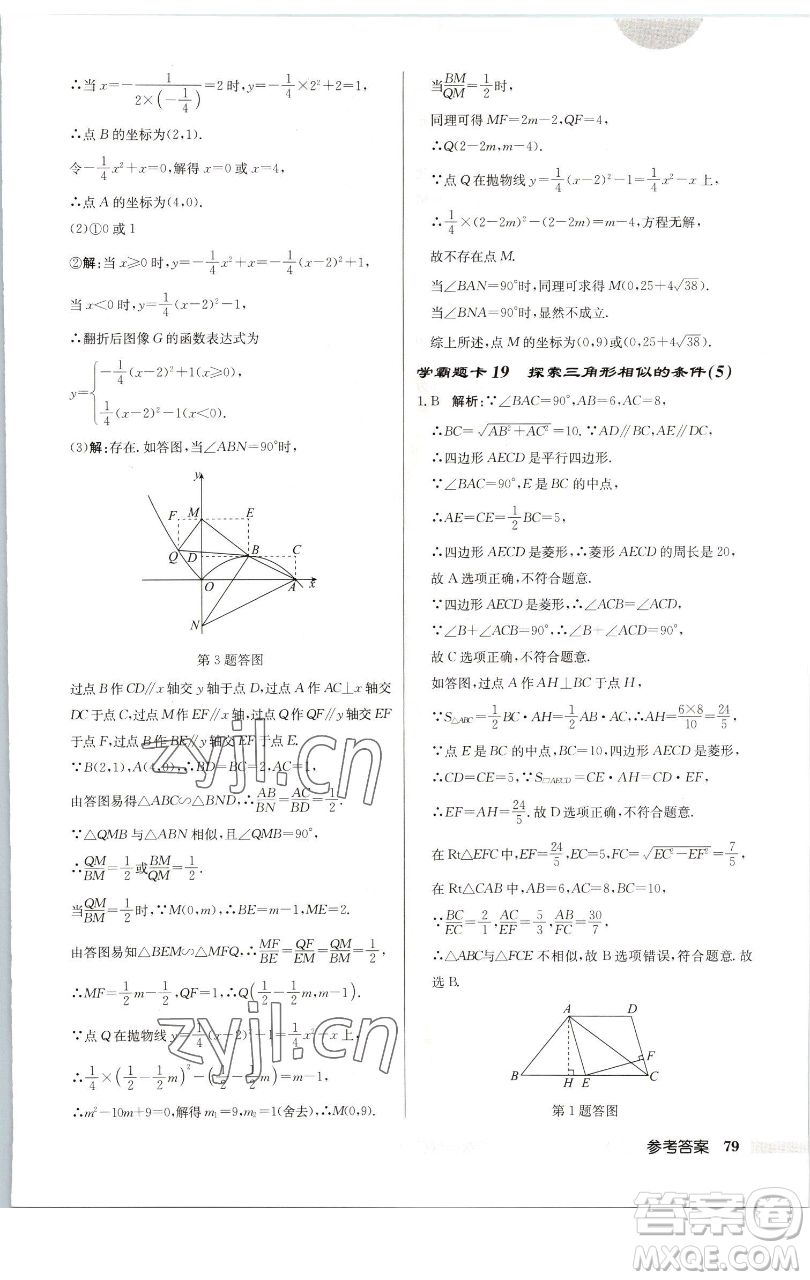 ∴当 x=-1/(2×(-1/4))=2 时,y=-1/4×2²+2=1.
∴点 B 的坐标为(2,1).
令-1/4x²+x=0,解得 x=0 或 x=4,
∴点 A 的坐标为(4,0).
(2)①0 或 1
②解:当 x≥0 时,y=-1/4x²+x=-1/4(x-2)²+1,
当 x<0 时,y=1/4(x-2)²-1,
∴翻折后图像 G 的函数表达式为
y={-1/4(x-2)²+1(x≥0),
1/4(x-2)²-1(x<0).
(3)解:存在. 如答图,当∠ABN=90°时,
y
F M E
Q D B C
O A x
N
第 3 题答图
过点 B 作 CD∥x 轴交 y 轴于点 D,过点 A 作 AC⊥x 轴交
DC 于点 C,过点 M 作 EF∥x 轴,过点 Q 作 QF∥y 轴交 EF
于点 F,过点 B 作 BE∥y 轴交 EF 于点 E.
∵B(2,1),A(4,0),∴BD=BC=2,AC=1,
由答图易得△ABC∽△BND,∴AB/BN=AC/BD=1/2.
∵△QMB 与△ABN 相似,且∠QMB=90°,
∴QM/BM=1/2或BM/QM=1/2.
当QM/BM=1/2时,∵M(0,m),∴BE=m-1,ME=2.
由答图易知△BEM∽△MFQ,∴MF/BE=QF/EM=QM/BM=1/2,
∴MF=1/2m-1/2,QF=1,∴Q(1/2-1/2m,m-1).
∵点 Q 在抛物线 y=1/4(x-2)²-1=1/4x²-x 上,
∴1/4×(1/2-1/2m)²-(1/2-1/2m)=m-1,
∴m²-10m+9=0,解得 m₁=9,m₂=1(舍去),∴M(0,9).
当BM/QM=1/2时,
同理可得 MF=2m-2,QF=4,
∴Q(2-2m,m-4).
∵点 Q 在抛物线 y=1/4(x-2)²-1=1/4x²-x 上,
∴1/4×(2-2m)²-(2-2m)=m-4,方程无解,
故不存在点 M.
当∠BAN=90°时,同理可得 M(0,25+4√38).
当∠BNA=90°时,显然不成立.
综上所述,点 M 的坐标为(0,9)或(0,25+4√38).
学霸题卡 19 探索三角形相似的条件(5)
1. B 解析:∵∠BAC=90°,AB=6,AC=8,
∴BC=√(AB²+AC²)=10. ∵AD∥BC,AE∥DC,
∴四边形 AECD 是平行四边形.
∵∠BAC=90°,E 是 BC 的中点,
∴AE=CE=1/2BC=5,
∴四边形 AECD 是菱形,∴菱形 AECD 的周长是 20,
故 A 选项正确,不符合题意.
∵四边形 AECD 是菱形,∴∠ACB=∠ACD,
∵∠B+∠ACB=90°,∴∠B+∠ACD=90°,
故 C 选项正确,不符合题意.
如答图,过点 A 作 AH⊥BC 于点 H,
∵S△ABC=1/2BC·AH=1/2AB·AC,∴AH=6×8/10=24/5,
∵点 E 是 BC 的中点,四边形 AECD 是菱形,
∴CD=CE=5. ∵S▱AECD=CE·AH=CD·EF,
∴EF=AH=24/5. 故 D 选项正确,不符合题意.
在 Rt△EFC 中,EF=24/5,EC=5,FC=√(EC²-EF²)=7/5,
在 Rt△CAB 中,AB=6,BC=10,AC=8,
∵BC/EC=2/1,AC/EF=5/3,AB/FC=30/7,
∴△ABC与△FCE 不相似,故 B 选项错误,符合题意. 故
选 B.
A D
F
B H E C
第 1 题答图
参考答案 79
zyjl.cn
zyjl.cn
答案圈
MXQE.COM